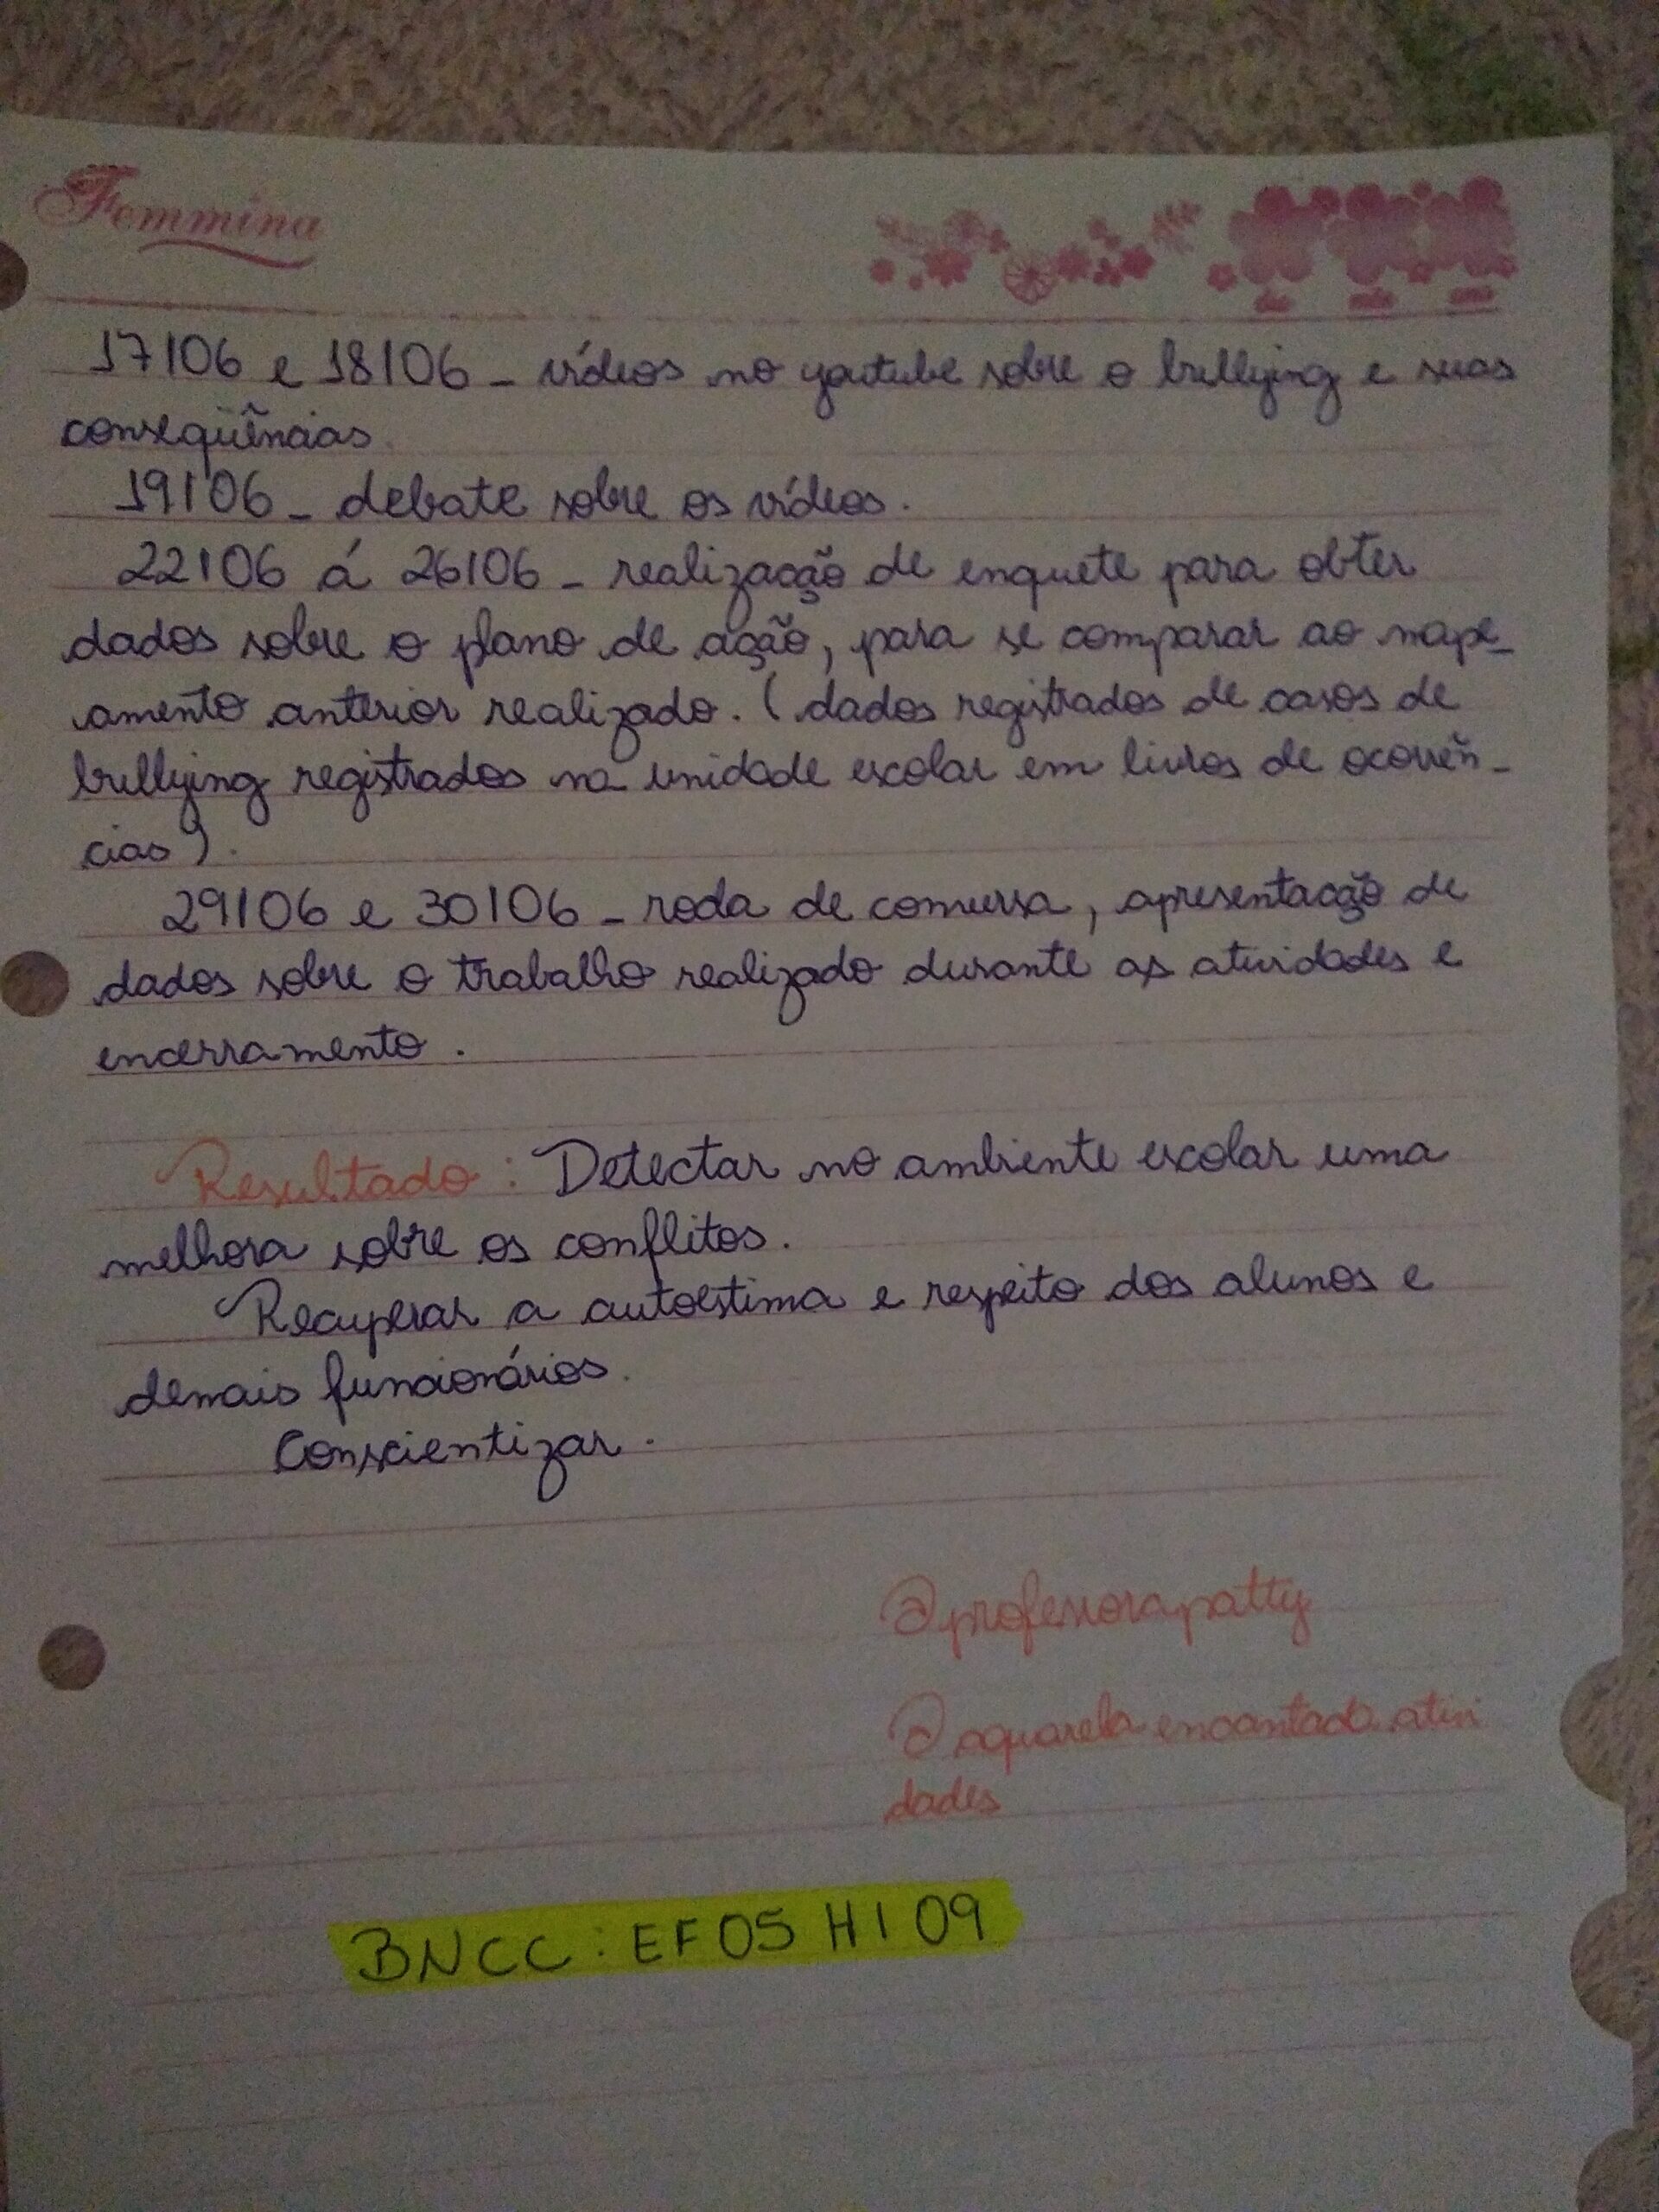 Femmina
dia mês ano
17/06 e 18/06 - vídeos no youtube sobre o bullying e suas
conseqüências.
19/06 - debate sobre os vídeos.
22/06 á 26/06 - realização de enquete para obter
dados sobre o plano de ação, para se comparar ao mape-
amento anterior realizado. (dados registrados de casos de
bullying registrados na unidade escolar em livros de ocorrên-
cias).
29/06 e 30/06 - roda de conversa, apresentação de
dados sobre o trabalho realizado durante as atividades e
encerramento.
Resultado: Detectar no ambiente escolar uma
melhora sobre os conflitos.
Recuperar a autoestima e respeito dos alunos e
demais funcionários.
Conscientizar.
@professorapatty
@aquarela encantada.ativi
dades
BNCC: EF05 HI 09